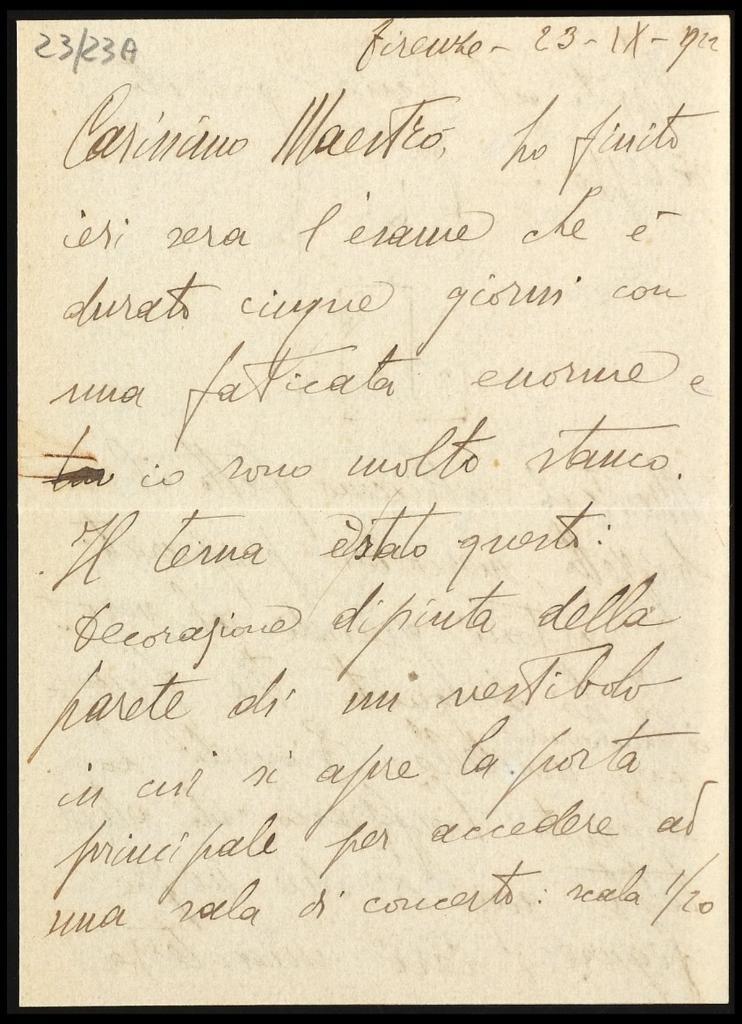 23/23A
Firenze - 23 - IX - 1922
Carissimo Maestro, ho finito
ieri sera l'esame che è
durato cinque giorni con
una faticata enorme e
io sono molto stanco.
Il tema è stato questo:
Decorazione dipinta della
parete di un vestibolo
in cui si apre la porta
principale per accedere ad
una sala di concerto: scala 1/20